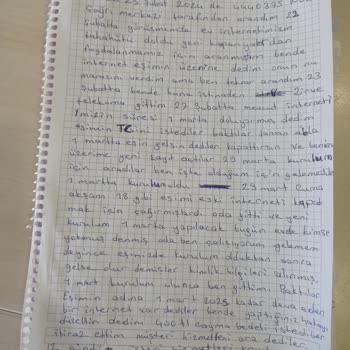 25 Şubat 2024 de 4440375
Çağrı merkezi tarafından arandım 22
Şubatta görüşmemde ev internetinizin
tahahütü doldu yeni kampanyalardan
faydalanmanız için aranmışsınız bende
internet eşimin üzerine dedim onun nu
marasını verdim ama ben tekrar arandım 23
şubatta bende buna istinaden
telekoma gittim 29 şubatta mevcut interneti
mizin süresi 1 marta doluyormuş dedim
eşimin TC ini istediler baktılar tamam abla
1 martta eşin gelsin dediler kapattırsın ve benim
üzerime yeni kayıt açtılar 29 marta kurulum
için aradılar ben işte olduğum için gelemedik
1 martta kurululdu 29 mart Cuma
akşam 18 gibi eşimi eski interneti kapat
mak için çağırmışlardı oda gitti ve yeni
kurulum 1 marta yapılacak bugün evde kimse
yokmuş denmiş abla ben çalışıyorum gelemem
deyince eşinizde kurulum olduktan sonra
gelse olur demişler kimlik bilgileri alınmış,
1 mart kurulum olunca ben gittim. Baktılar
Eşimin adına 1 mart 2025 kadar devam eden
bir internet var dediler bende yaptığınız hatayı
düzeltin dedim 400 tl cayma bedeli istediler
itiraz ettim müşteri hizmetleri ara dediler